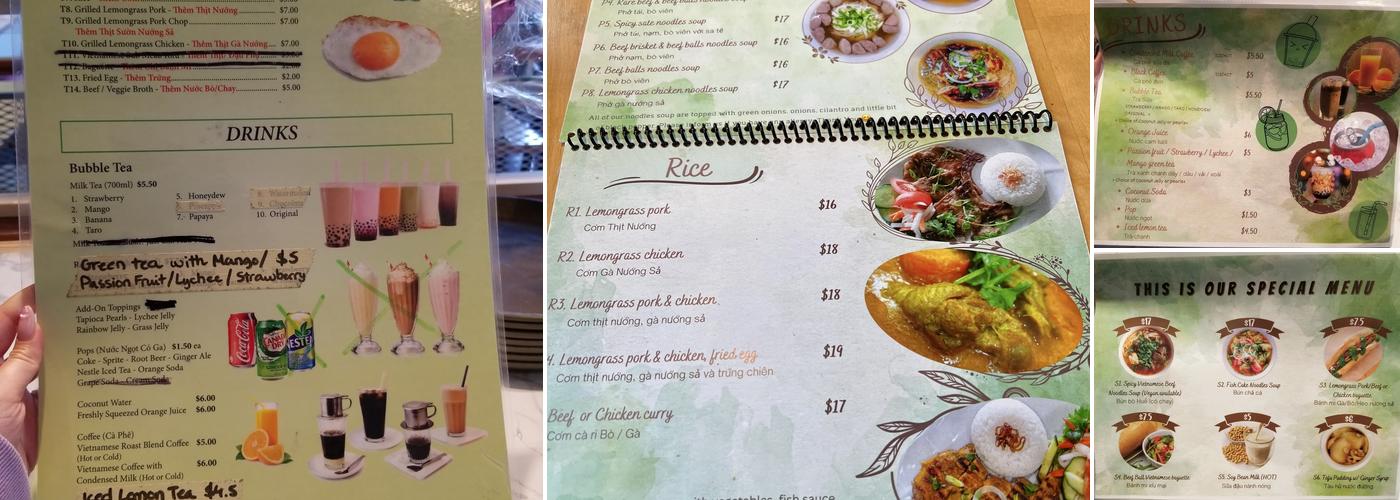 T8. Grilled Lemongrass Pork - Thêm Thịt Nướng $7.00
T9. Grilled Lemongrass Pork Chop $7.00
Thêm Thịt Sườn Nướng Sả
T10. Grilled Lemongrass Chicken - Thêm Thịt Gà Nướng $7.00
T13. Fried Egg - Thêm Trứng $2.00
T14. Beef / Veggie Broth - Thêm Nước Bò/Chay $5.00
DRINKS
Bubble Tea
Milk Tea (700ml) $5.50
1. Strawberry
2. Mango
3. Banana
4. Taro
5. Honeydew
6. Pineapple
7. Papaya
8. Watermelon
9. Chocolate
10. Original
Green tea with Mango/ $5
Passion Fruit/Lychee/Strawberry
Add-On Toppings
Tapioca Pearls - Lychee Jelly
Rainbow Jelly - Grass Jelly
Pops (Nước Ngọt Có Ga) $1.50 ea
Coke - Sprite - Root Beer - Ginger Ale
Nestle Iced Tea - Orange Crush
Grape Soda - Cream Soda
Coconut Water $6.00
Freshly Squeezed Orange Juice $6.00
Coffee (Cà Phê)
Vietnamese Roast Blend Coffee $5.00
(Hot or Cold)
Vietnamese Coffee with $6.00
Condensed Milk (Hot or Cold)
Iced Lemon Tea $4.5
Coca-Cola
CANADA DRY
NESTEA
P4. Rare beef & beef balls noodles soup
Phở tái, bò viên
P5. Spicy sate noodles soup $17
Phở tái, nạm, bò viên với sa tế
P6. Beef brisket & beef balls noodles soup $16
Phở nạm, bò viên
P7. Beef balls noodles soup $16
Phở bò viên
P8. Lemongrass chicken noodles soup $17
Phở gà nướng sả
All of our noodles soup are topped with green onions, onions, cilantro and little bit
Rice
R1. Lemongrass pork $16
Cơm Thịt Nướng
R2. Lemongrass chicken $18
Cơm Gà Nướng Sả
R3. Lemongrass pork & chicken $18
Cơm thịt nướng, gà nướng sả
4. Lemongrass pork & chicken, fried egg $19
Cơm thịt nướng, gà nướng sả và trứng chiên
Beef or Chicken curry $17
Cơm cà ri Bò / Gà
with vegetables, fish sauce
DRINKS
Condensed Milk Coffee $5.50
Black Coffee $5
Cà phê đen
Bubble Tea $5.50
Trà Sữa
Orange Juice $6
Nước cam tươi
Passion fruit / Strawberry / Lychee / $5
Mango green tea
Trà xanh chanh dây / dâu / vải / xoài
Coconut Soda $3
Nước dừa
Pop $1.50
Nước ngọt
Iced lemon tea $4.50
Trà chanh
THIS IS OUR SPECIAL MENU
$17
$17
$7.5
S1. Spicy Vietnamese Beef
Noodles Soup (Vegan available)
Bún bò Huế (có chay)
S2. Fish Cake Noodles Soup
Bún chả cá
S3. Lemongrass Pork/Beef or
Chicken baguette
Bánh mì Gà/Bò/Heo nướng sả
$7.5
$5
$6
S4. Beef Ball Vietnamese baguette
Bánh mì xíu mại
S5. Soy Bean Milk (HOT)
Sữa đậu nành nóng
S6. Tofu Pudding w/ Ginger Syrup
Tàu hũ nước đường